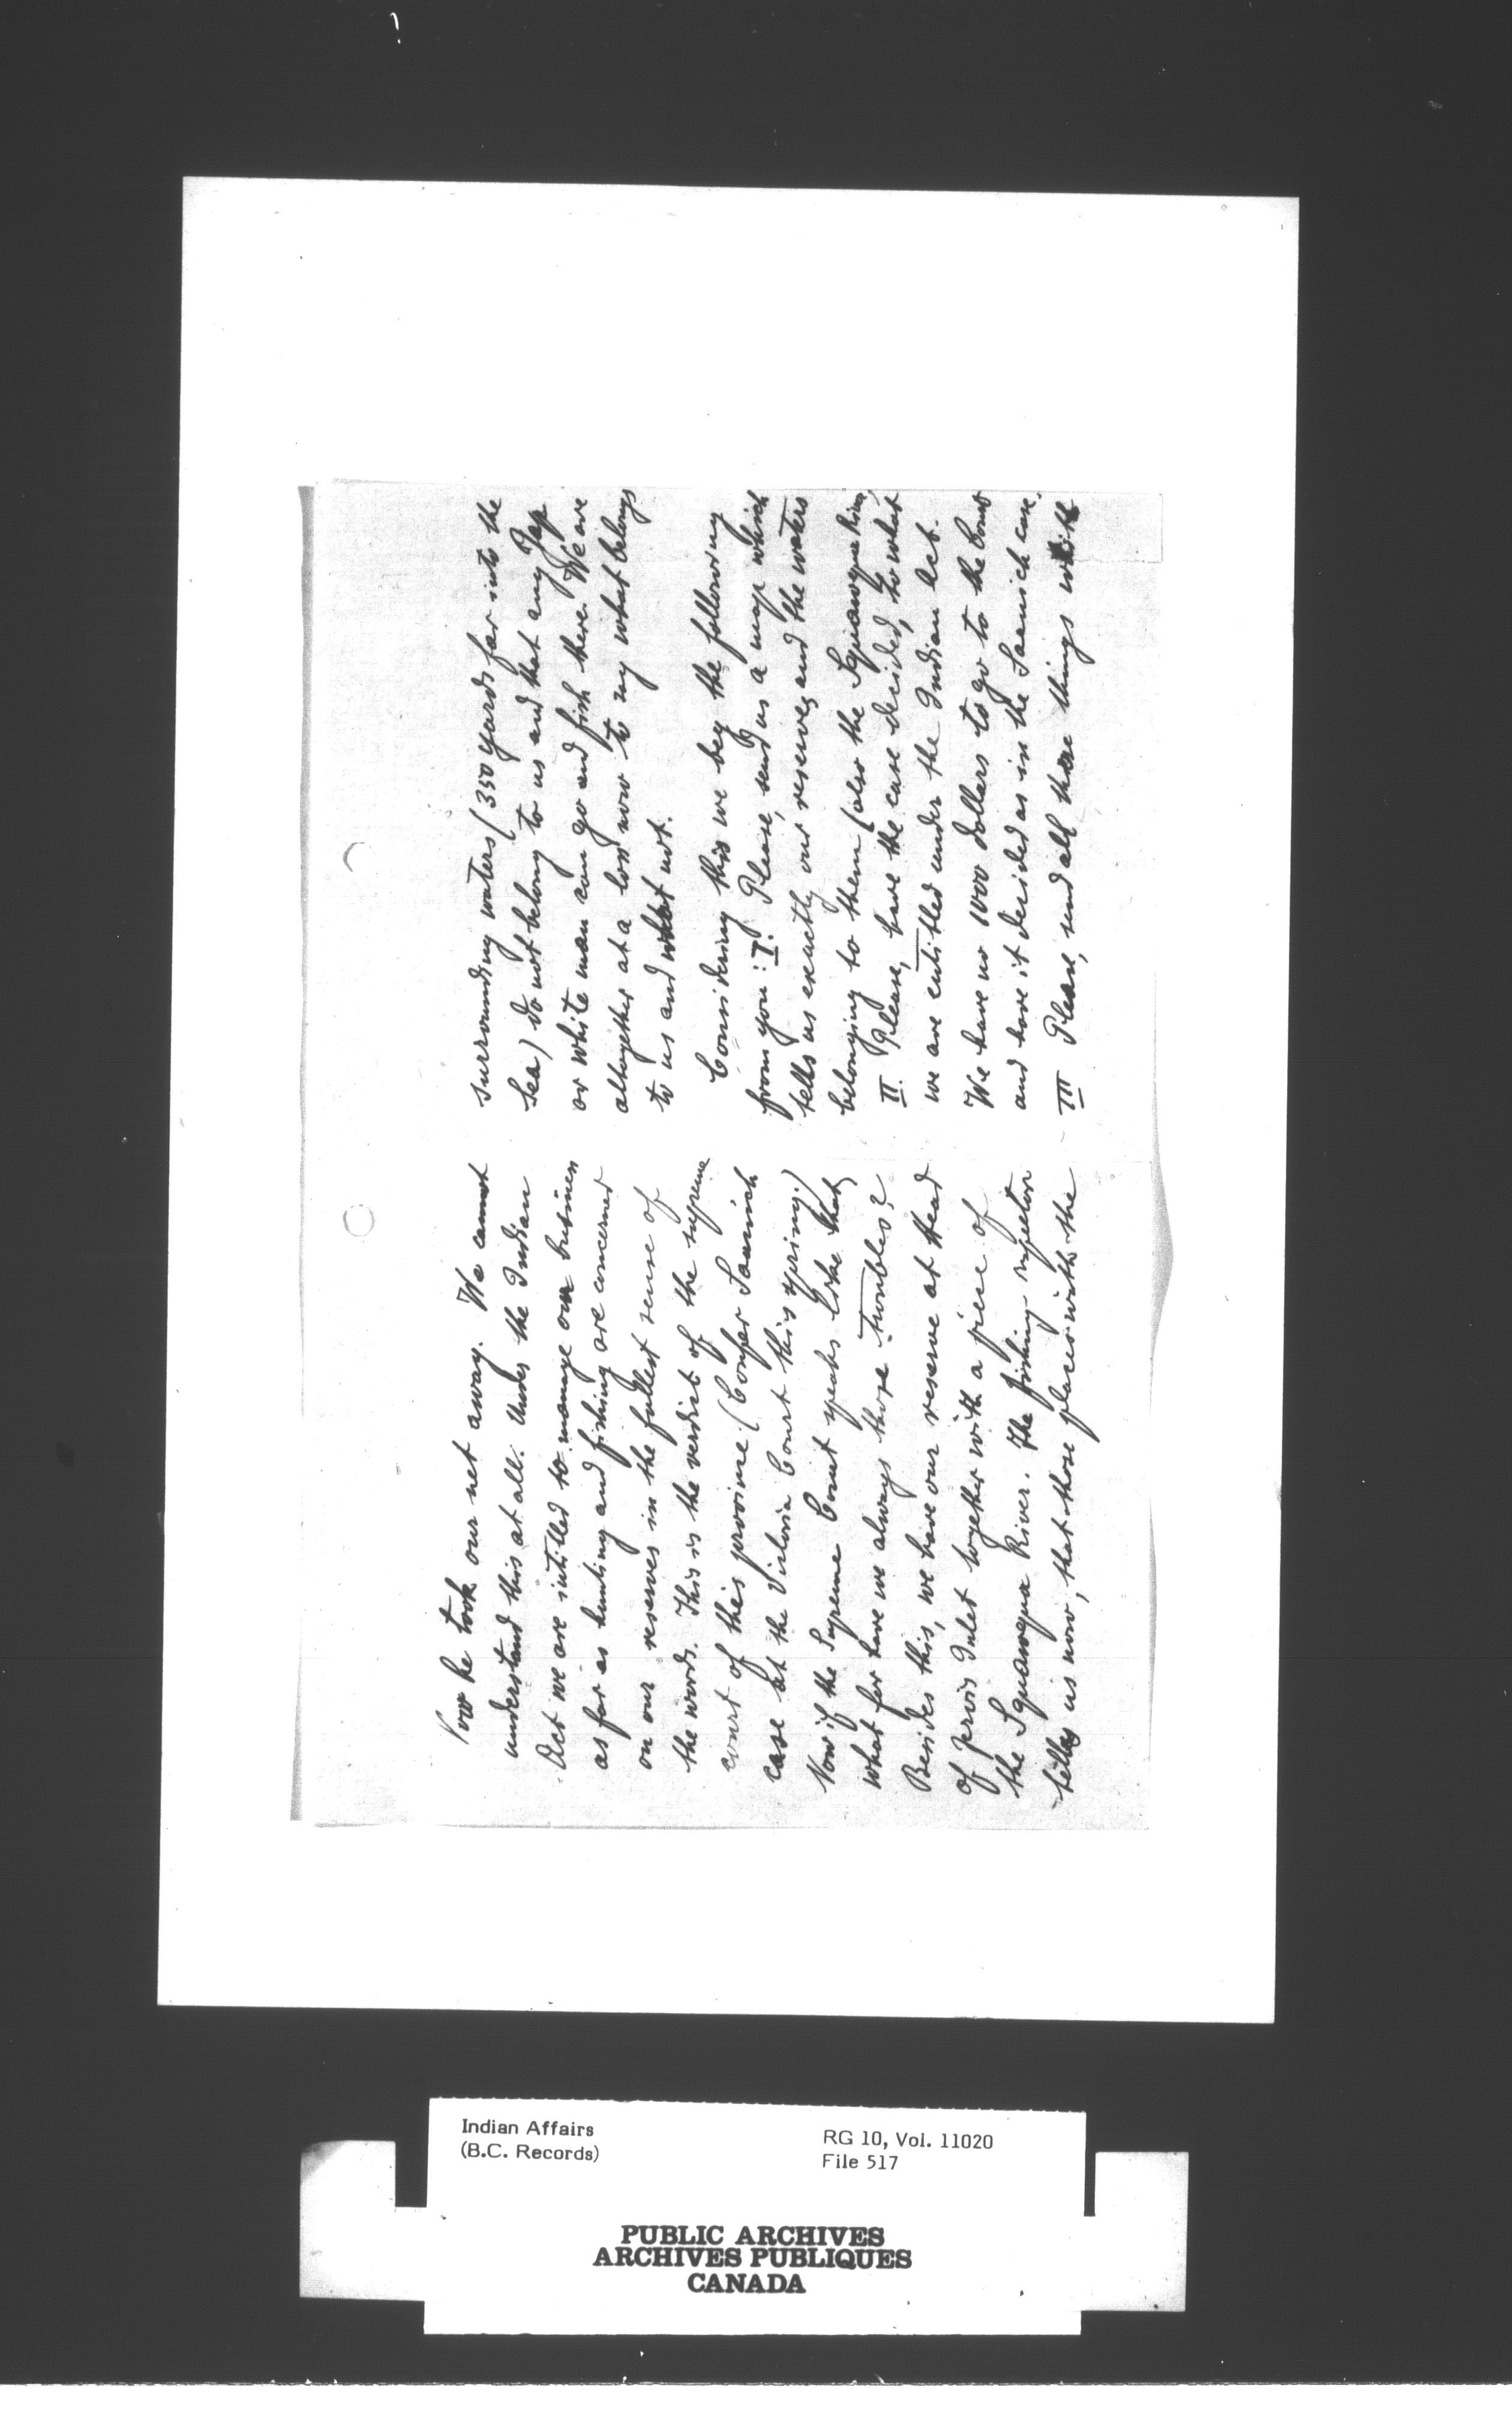 Now he took our net away. We cannot
understand this at all. Under the Indian
Act we are intitled to manage our business
as far as hunting and fishing are concerned
on our reserves in the fullest sense of
the word. This is the verdict of the supreme
court of this provinve (Confer Saanich
case at the Victoria Court this spring.)
Now if the Supreme Court speaks like that,
what for have we always those troubles?
Besides this, we have our reserve at Head
of Jervis Inlet together with a piece of
the Squawqua River. The fishing-inspector
tells us now, that those places with the
surrounding waters (350 yards far into the
Sea) do not belong to us and that any Jap
or white man can go and fish there. We are
altogether at a loss now to say what belongs
to us and what not.
Considering this we beg the following
from you: I. Please, send us a map which
tells us exactly our reserves and the waters
belonging to them (also the Squawqua River)
II. Please, have the case decided, to what
we are entitled under the Indian Act.
We have no 1000 dollars to go to the Court
and have it decided as in the Saanich case.
III Please, send all these things with
Indian Affairs
(B.C. Records)
RG 10, Vol. 11020
File 517
PUBLIC ARCHIVES
ARCHIVES PUBLIQUES
CANADA